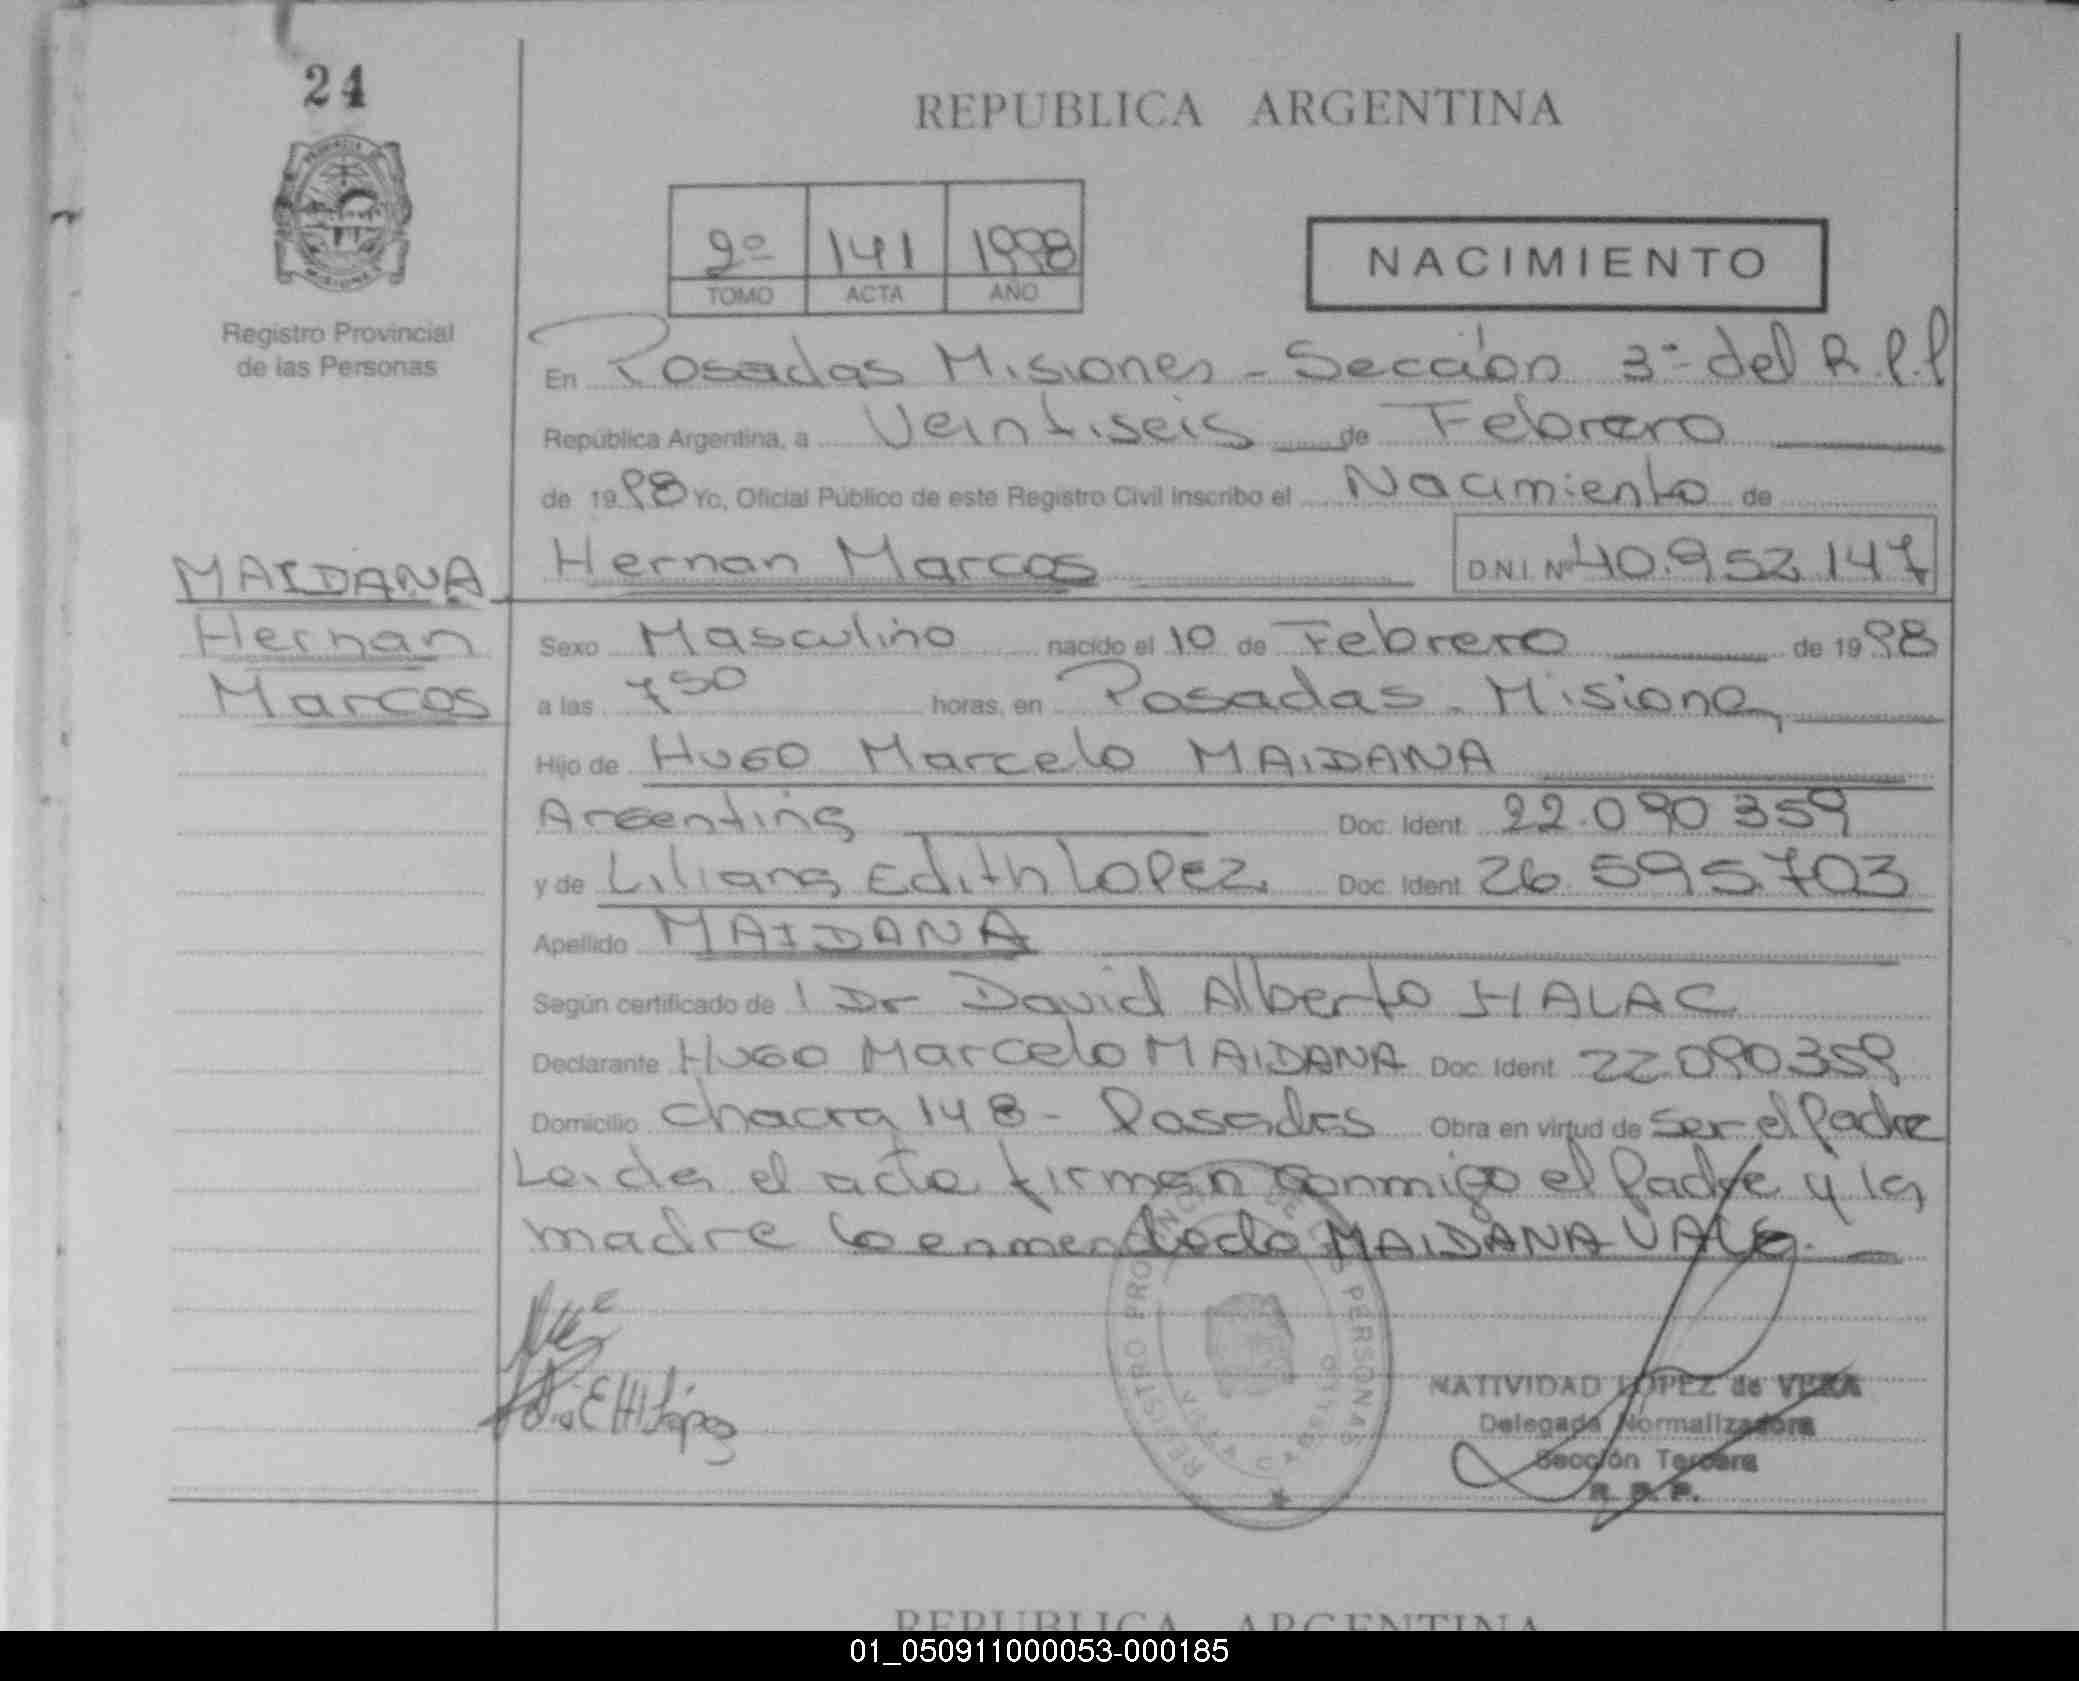 24
REPUBLICA ARGENTINA
PROVINCIA DE MISIONES
Registro Provincial
de las Personas
2º 141 1998
TOMO ACTA AÑO
NACIMIENTO
En Posadas Misiones - Sección 3ª del R.P.P
República Argentina, a Veintiseis de Febrero
de 1998 Yo, Oficial Público de este Registro Civil inscribo el Nacimiento de
MAIDANA
Hernan
Marcos
Hernan Marcos D.N.I. Nº 40.952.147
Sexo Masculino nacido el 10 de Febrero de 1998
a las 7 50 horas, en Posadas - Misiones
Hijo de Hugo Marcelo MAIDANA
Argentina Doc. Ident. 22.090.359
y de Liliana Edith Lopez Doc. Ident. 26.595.703
Apellido MAIDANA
Según certificado de l Dr David Alberto HALAC
Declarante Hugo Marcelo MAIDANA Doc. Ident. 22.090.359
Domicilio chacra 148 - Posadas Obra en virtud de ser el Padre
Leida el acta firman conmigo el Padre y la
madre lo enmendado MAIDANA VALE. —
REGISTRO PROVINCIAL DE LAS PERSONAS
Edith López
NATIVIDAD LOPEZ de VERA
Delegada Normalizadora
Sección Tercera
R. P. P.
REPUBLICA ARGENTINA
01_050911000053-000185